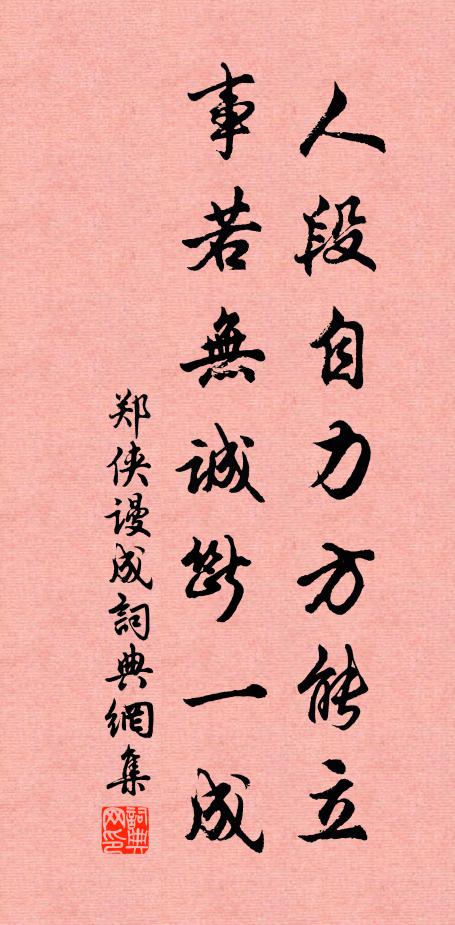 人段自力方能立
事若無誠斷一成
郑侠谩成詞典網集
詞典网印